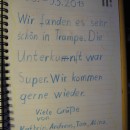 03.2011 !!
Wir fanden es sehr
schön in Trampe. Die
Unterkunft war
Super. Wir kommen
gerne wieder.
Viele Grüße
von